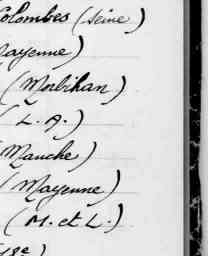 Colombes (Seine)
Mayenne)
(Morbihan)
(L. A.)
(Manche)
(Mayenne)
(M. et L.)
(18e)